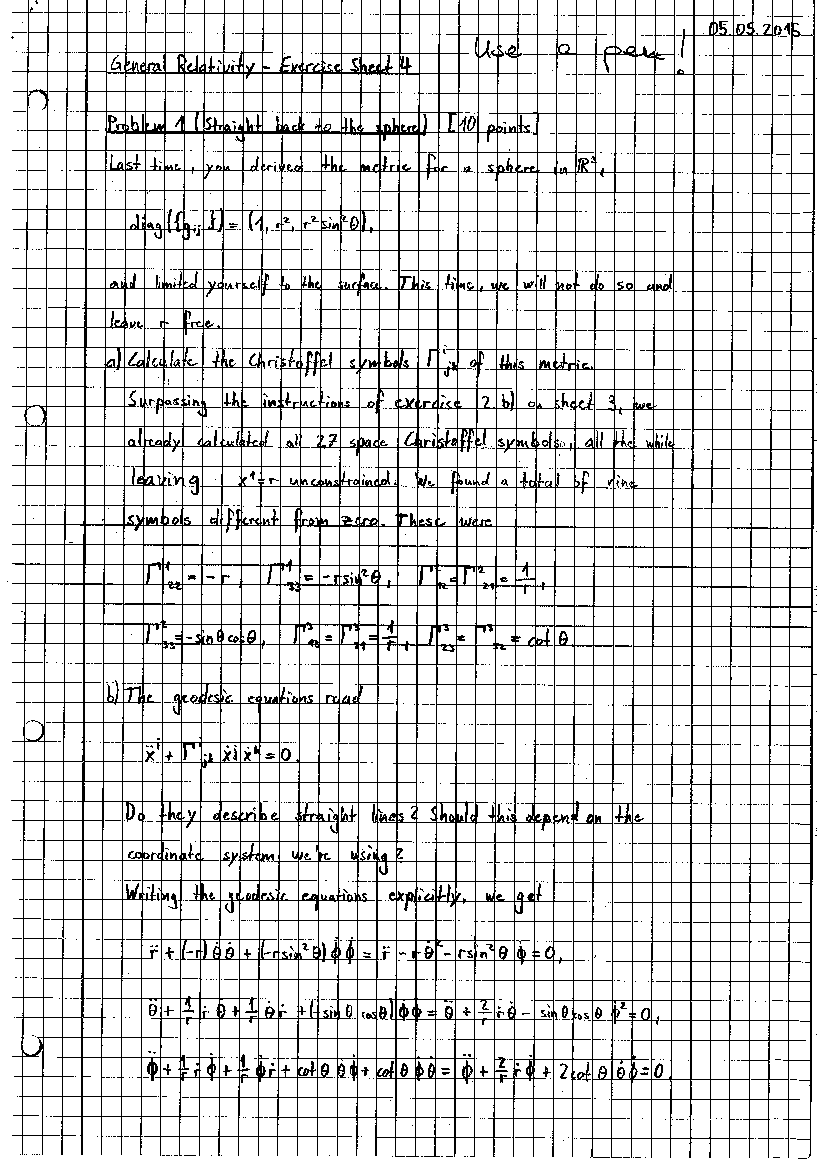 05.05.2015
Use a pen!
General Relativity - Exercise Sheet 4
Problem 1 (Straight back to the sphere) [10 points]
Last time, you derived the metric for a sphere in ℝ³,
diag({gᵢⱼ}) = (1, r², r² sin²θ),
and limited yourself to the surface. This time, we will not do so and
leave r free.
a) Calculate the Christoffel symbols Γⁱⱼₖ of this metric.
Surpassing the instructions of exercise 2 b) on sheet 3, we
already calculated all 27 space Christoffel symbols, all the while
leaving x¹=r unconstrained. We found a total of nine
symbols different from zero. These were
Γ¹₂₂ = -r, Γ¹₃₃ = -r sin²θ, Γ²₁₂ = Γ²₂₁ = 1/r,
Γ²₃₃ = -sin θ cos θ, Γ³₁₃ = Γ³₃₁ = 1/r, Γ³₂₃ = Γ³₃₂ = cot θ
b) The geodesic equations read
ẍⁱ + Γⁱⱼₖ ẋʲ ẋᵏ = 0.
Do they describe straight lines? Should this depend on the
coordinate system we're using?
Writing the geodesic equations explicitly, we get
r̈ + (-r) θ̇ θ̇ + (-r sin²θ) ϕ̇ ϕ̇ = r̈ - r θ̇² - r sin²θ ϕ̇ = 0,
θ̈ + 1/r ṙ θ̇ + 1/r θ̇ ṙ + (-sin θ cos θ) ϕ̇ ϕ̇ = θ̈ + 2/r ṙ θ̇ - sin θ cos θ ϕ̇² = 0,
ϕ̈ + 1/r ṙ ϕ̇ + 1/r ϕ̇ ṙ + cot θ θ̇ ϕ̇ + cot θ ϕ̇ θ̇ = ϕ̈ + 2/r ṙ ϕ̇ + 2 cot θ θ̇ ϕ̇ = 0